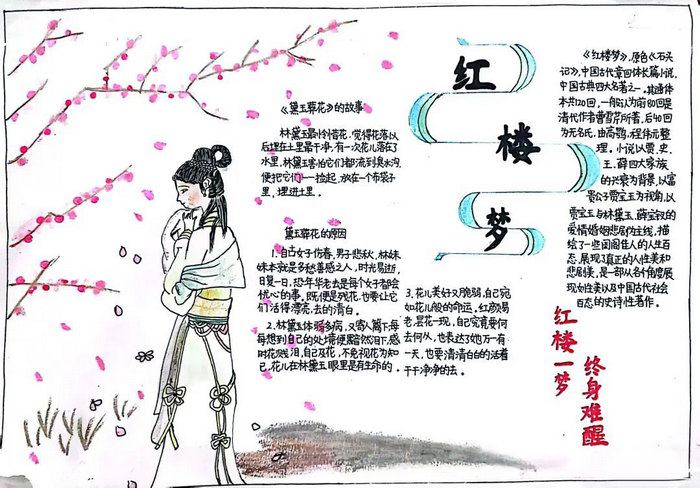 红
楼
梦
《黛玉葬花》的故事
林黛玉最怜惜花，觉得花落以
后埋在土里最干净，有一次花儿落在了
水里，林黛玉害怕它们都流到臭水沟，
便把它们一一捡起，放在一个布袋子
里，埋进土里。
黛玉葬花的原因
1.自古女子伤春，男子悲秋，林妹
妹本就是多愁善感之人，时光易逝，
日复一日，恐年华老去是每个女子都会
忧心的事，既便是残花，也要让它
们活得漂亮，去的清白。
2.林黛玉体弱多病，又寄人篱下，每
每想到自己的处境便黯然泪下，感
时花溅泪，自己及花，不免视花为知
己，花儿在林黛玉眼里是有生命的。
3.花儿美好又脆弱，自己宛
如花儿般的命运。红颜易
老，昙花一现，自己究竟要何
去何从，也表达了她万有一
一天，也要清清白白的活着
干干净净的去。
《红楼梦》，原名《石头
记》，中国古代章回体长篇小说，
中国古典四大名著之一。其通体
本共120回，一般认为前80回是
清代作者曹雪芹所著，后40回
为无名氏，由高鹗、程伟元整
理，小说以贾、史、
王、薛四大家族
的兴衰为背景，以富
贵公子贾宝玉为视角，以
贾宝玉与林黛玉、薛宝钗的
爱情婚姻悲剧为主线，描
绘了一些闺阁佳人的人生百
态，展现了真正的人性美和
悲剧美，是一部从各个角度展
现女性美以及中国古代社会
百态的史诗性著作。
红楼一梦
终身难醒